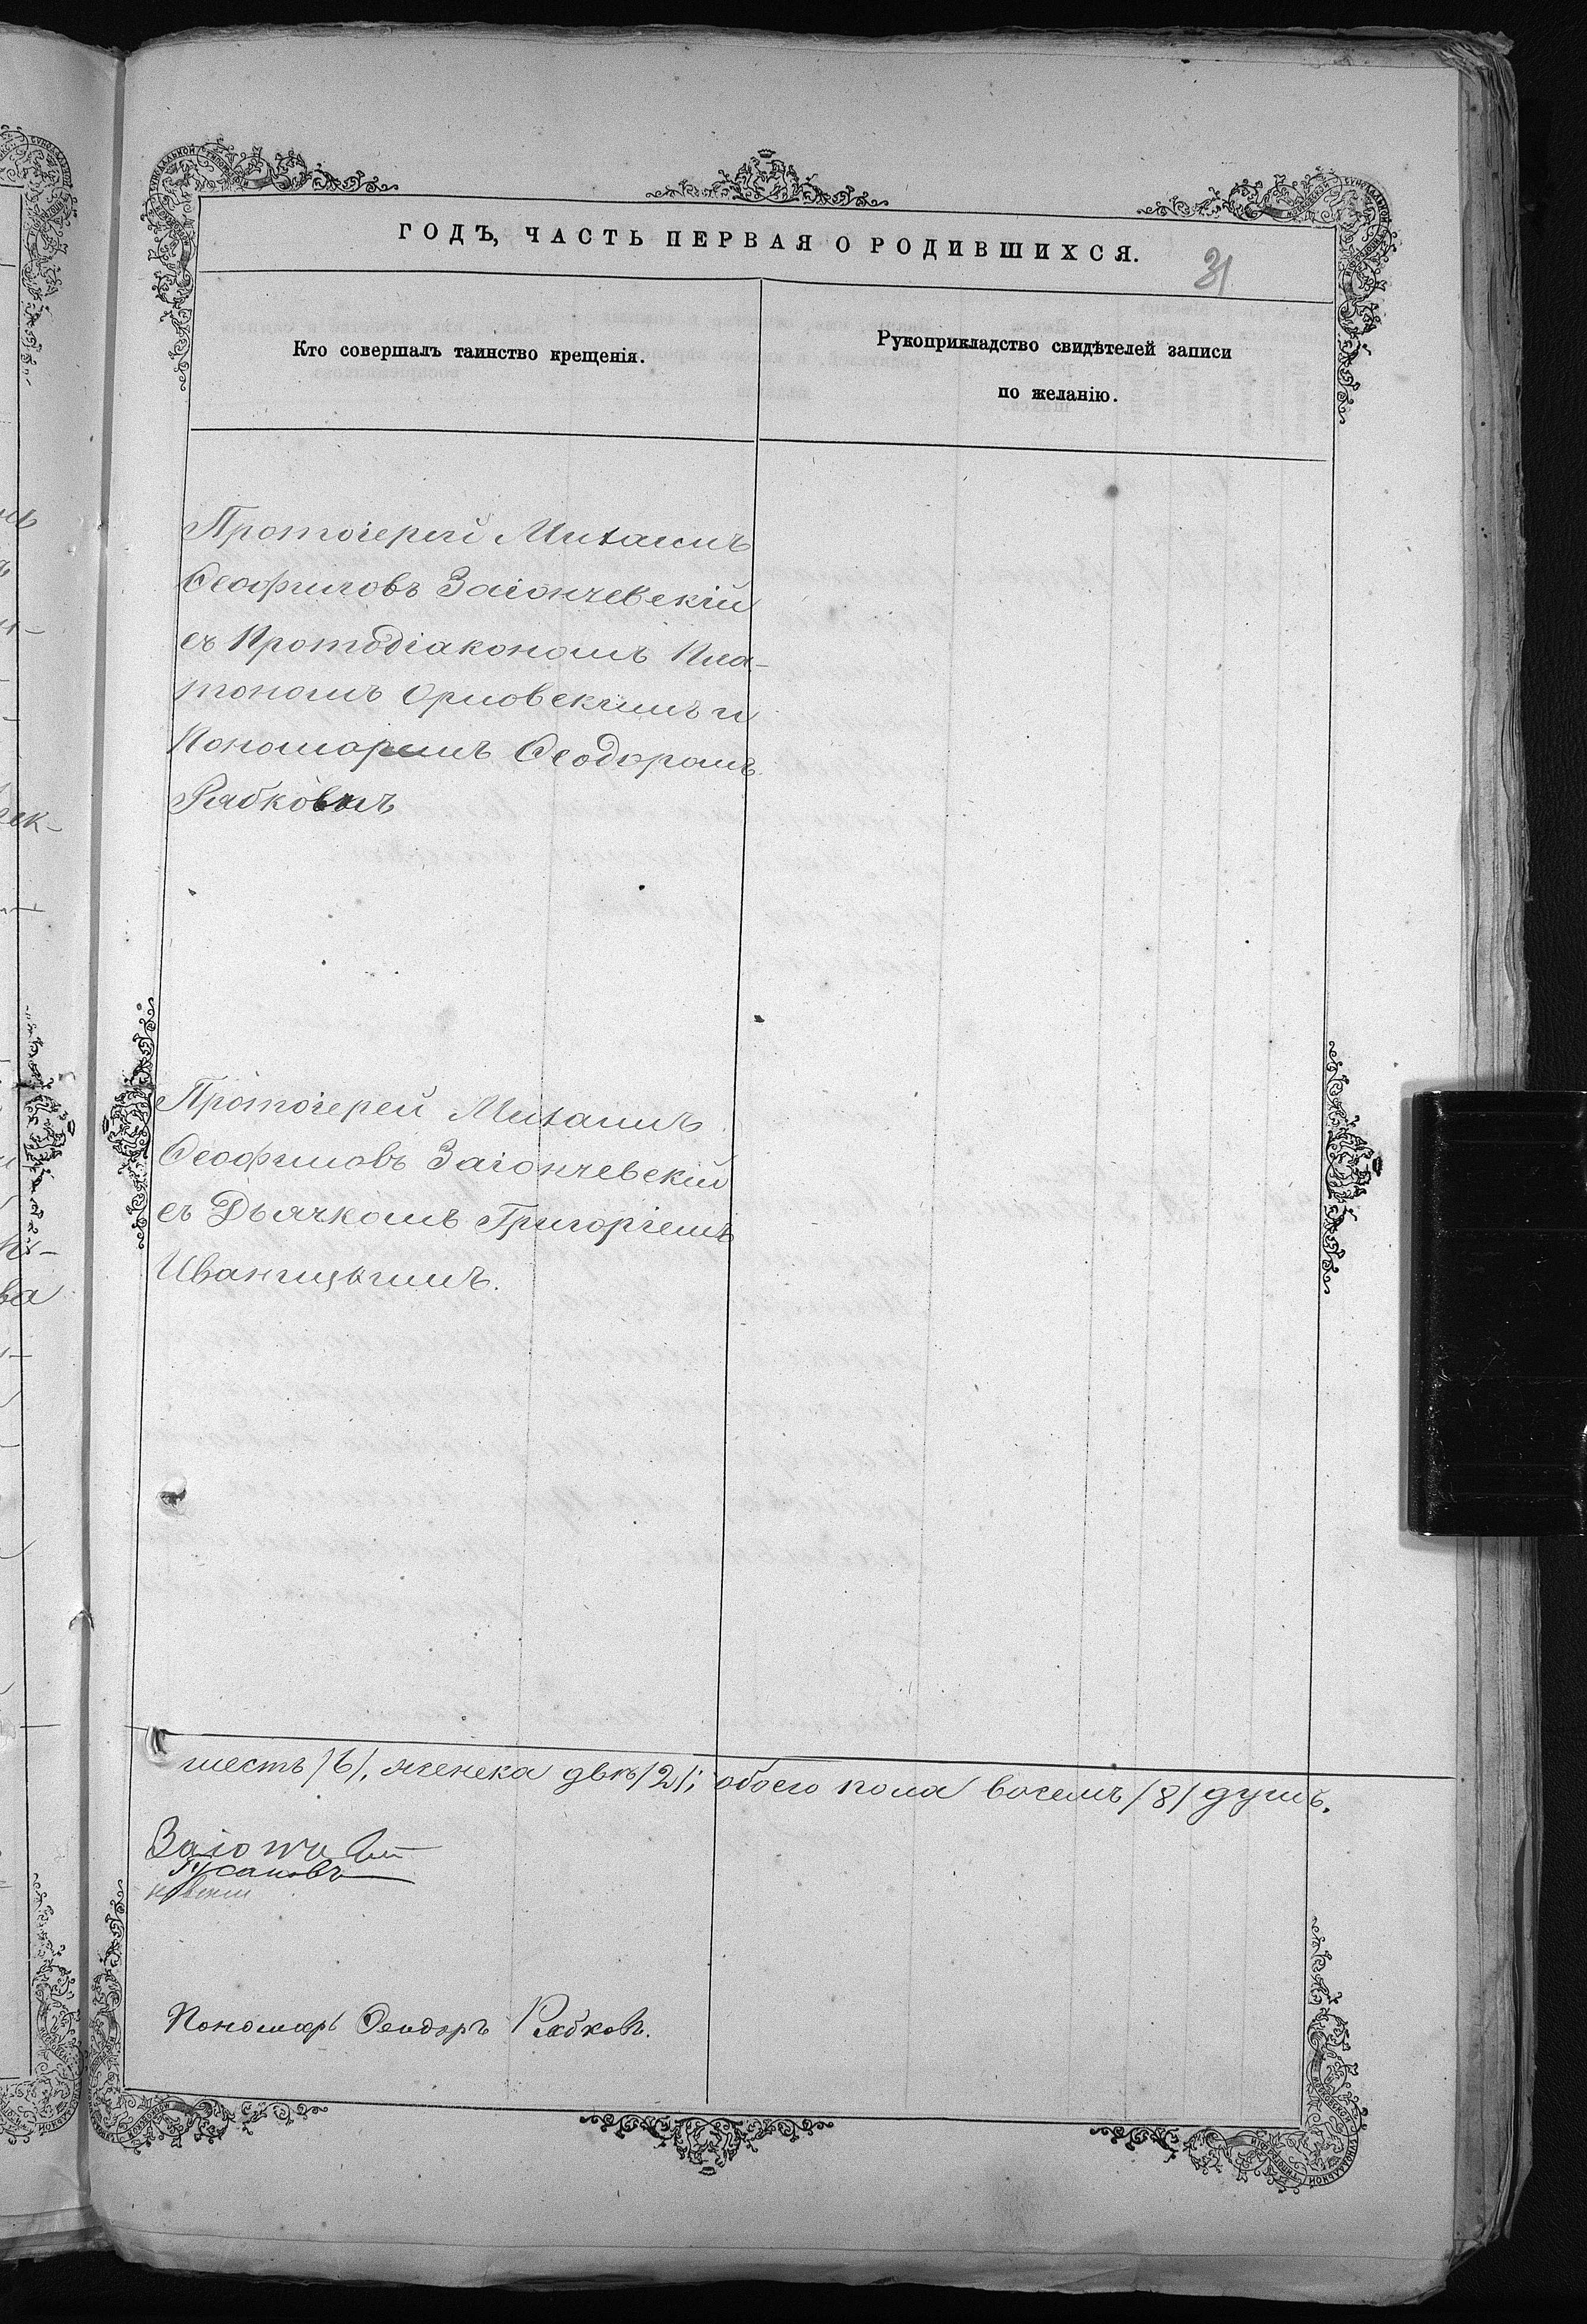 ГОДЪ, ЧАСТЬ ПЕРВАЯ О РОДИВШИХСЯ.
31
Кто совершалъ таинство крещенія.
Рукоприкладство свидѣтелей записи
по желанію.
Протоіерей Михаилъ
Ѳеофиловъ Заіончевскій
съ Протодіакономъ Пла-
тономъ Орловскимъ и
Пономаремъ Ѳеодоромъ
Рябковымъ
Протоіерей Михаилъ
Ѳеофиловъ Заіончевскій
съ Дьячкомъ Григоріемъ
Иваницкимъ.
шесть /6/, женска двѣ /2/; обоего пола восемь /8/ душъ.
Русановъ
Пономарь Ѳеодоръ Рябковъ.